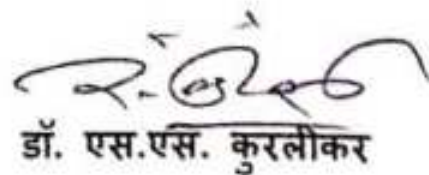 डॉ. एस.एस. कुरलीकर